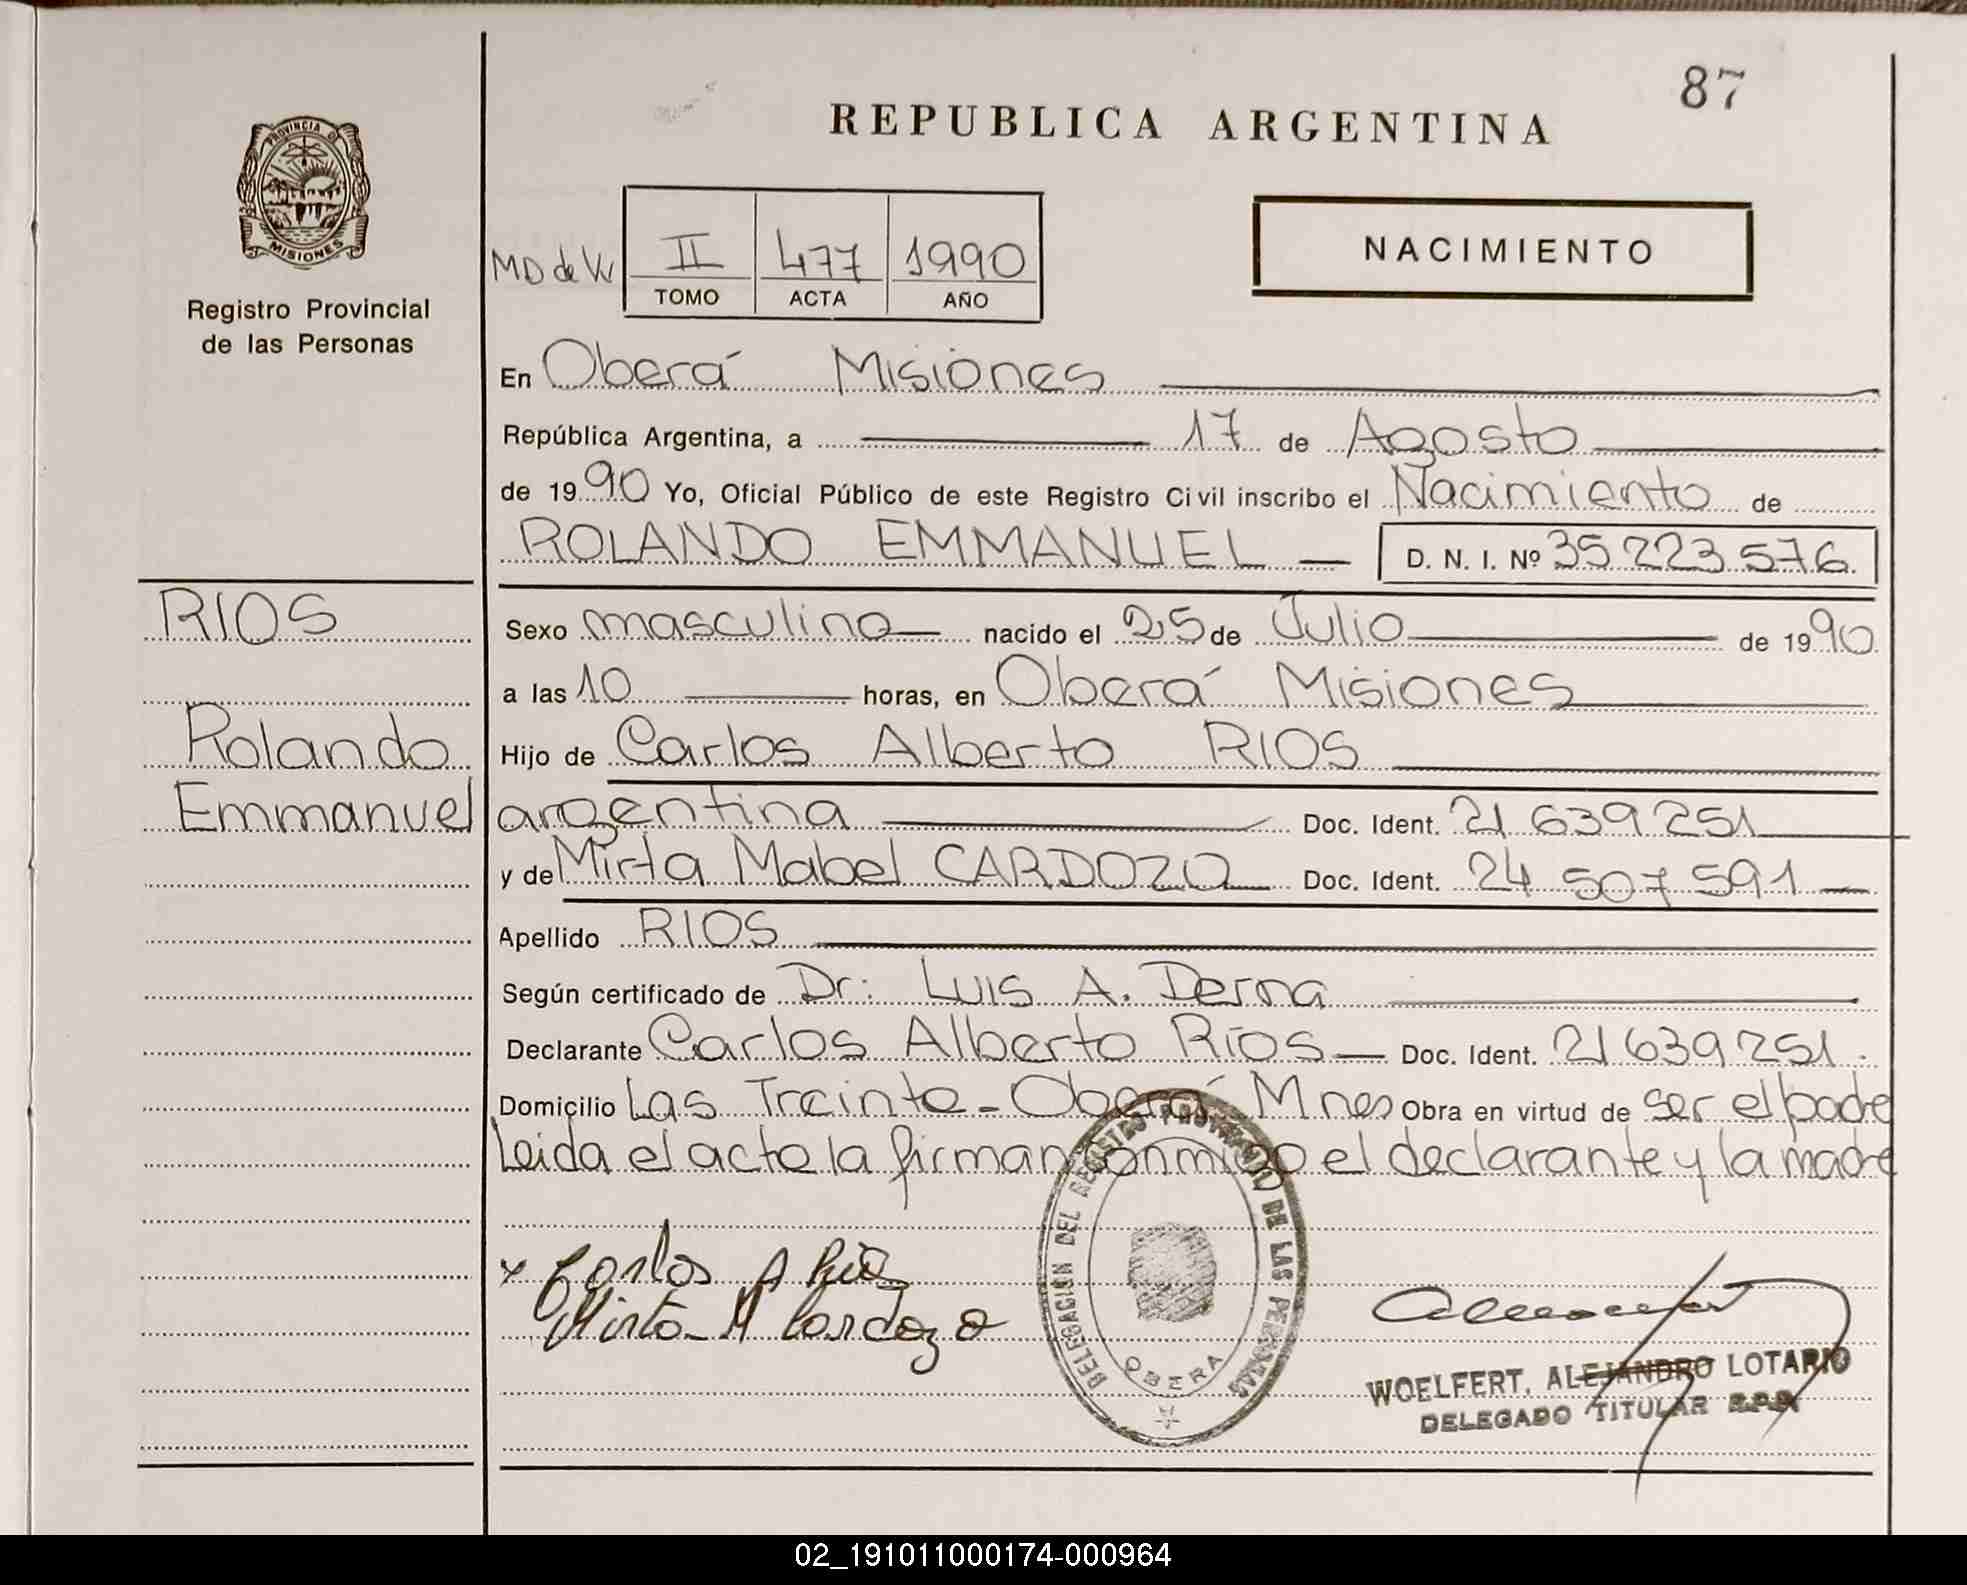 87
REPUBLICA ARGENTINA
PROVINCIA DE
MISIONES
Registro Provincial
de las Personas
II 477 1990
TOMO ACTA AÑO
NACIMIENTO
En Oberá Misiones
República Argentina, a 17 de Agosto
de 1990 Yo, Oficial Público de este Registro Civil inscribo el Nacimiento de
ROLANDO EMMANUEL D. N. I. Nº 35 223 576.
RIOS
Rolando
Emmanuel
Sexo masculino nacido el 25 de Julio de 1990
a las 10 horas, en Oberá Misiones
Hijo de Carlos Alberto RIOS
argentina Doc. Ident. 21 639 251
y de Mirta Mabel CARDOZO Doc. Ident. 24 507 591
Apellido RIOS
Según certificado de Dr: Luis A. Derna
Declarante Carlos Alberto Ríos Doc. Ident. 21 639 251.
Domicilio Las Treinta - Oberá Mnes Obra en virtud de ser el padre
Leida el acta la firman conmigo el declarante y la madre
x Carlos A Rios
Mirta M Cardozo
DELEGACION DEL REGISTRO PROVINCIAL DE LAS PERSONAS
OBERA
WOELFERT, ALEJANDRO LOTARIO
DELEGADO TITULAR R.P.P.
02_191011000174-000964